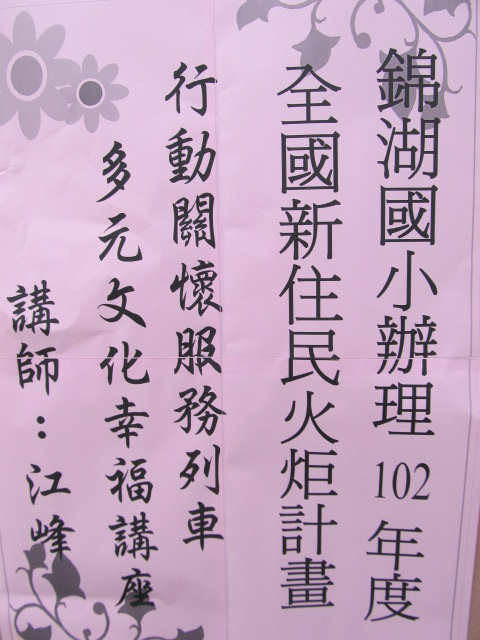 錦湖國小辦理102年度
全國新住民火炬計畫
行動關懷服務列車
多元文化幸福講座
講師：江峰